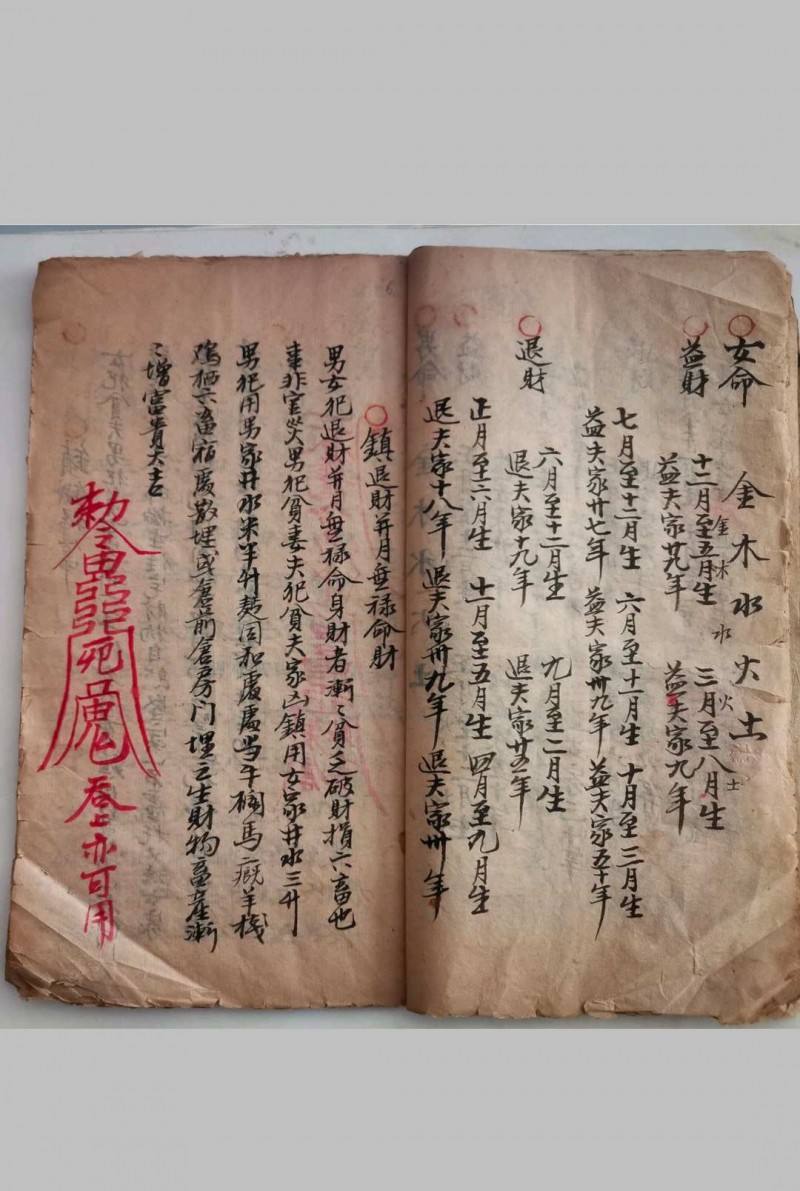 女命 金 木 水 火 土
金 木 水 火 土
益財
十二月至五月生 三月至八月生
益夫家廿九年 益夫家九年
七月至十二月生 六月至十一月生 十月至三月生
益夫家卅七年 益夫家卅九年 益夫家五十年
退財
六月至十二月生 九月至二月生
退夫家十九年 退夫家廿五年
正月至六月生 十一月至五月生 四月至九月生
退夫家十八年 退夫家卅九年 退夫家卅年
鎮退財并月無祿命財
男女犯退財并月無祿命身財者漸〻貧乏破財損六畜也
非官災男犯貧妻夫犯貧夫家凶鎮用女家井水三升
男犯用男家井水米半升麺同和處處与牛欄馬廐羊棧
鸡栖六畜宿處散埋或倉前倉房門埋之生財物畜產漸
〻增富貴大吉
勅令
死 鬼
吞上亦可用